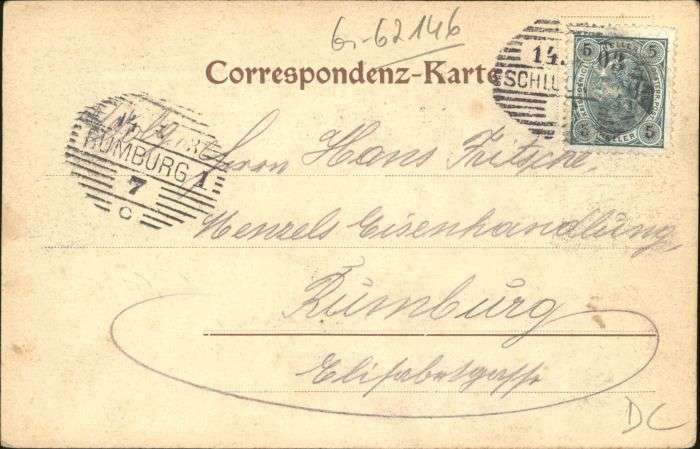 Gr-62146
Correspondenz-Karte
14. 03
SCHILU
5 HELLER 5
5 HELLER 5
RUMBURG 1
7
C
Wolgnt
Herrn Hans Fritsche,
Menzels Eisenhandlung,
Rumburg
Elisabetgasse
DC